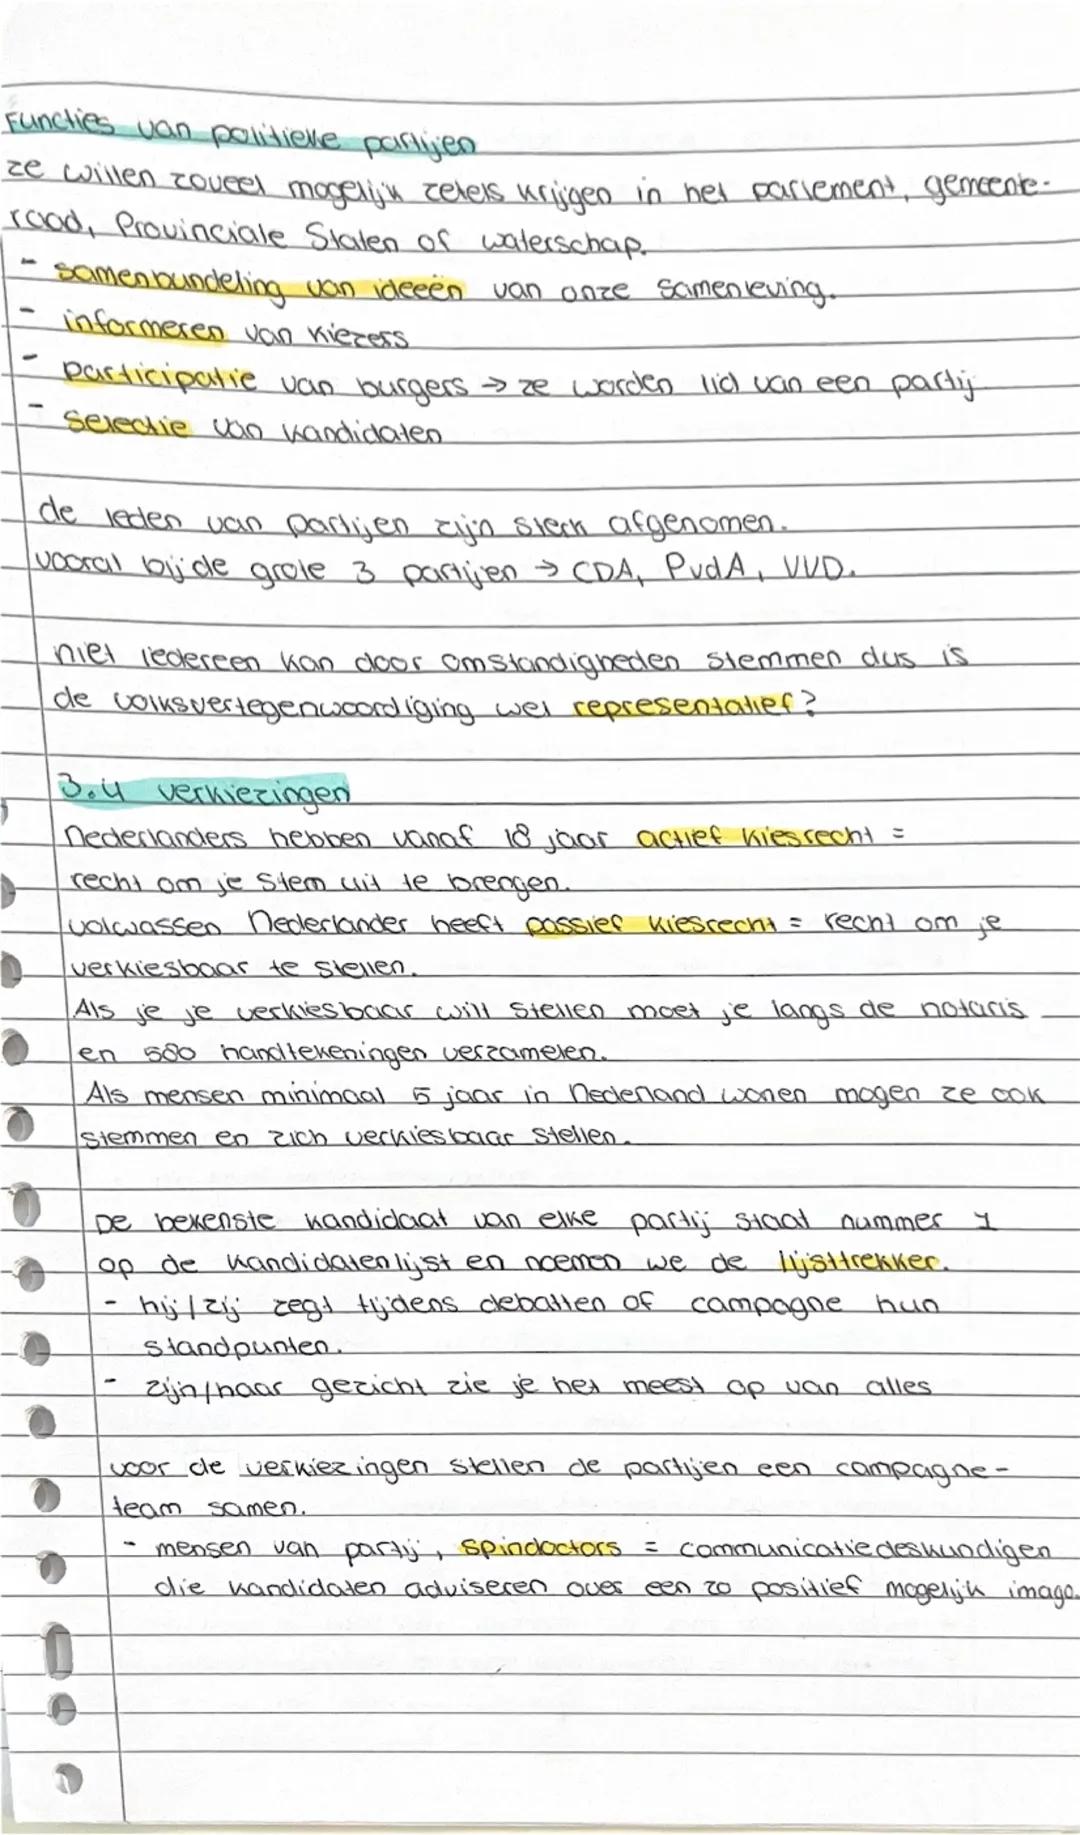 Functies van politieke partijen
ze willen zoveel mogelijk zetels krijgen in het parlement, gemeente-
raad, Provinciale Staten of waterschap.
- samenbundeling van ideeën van onze samenleving.
- informeren van kiezers
- participatie van burgers → ze worden lid van een partij
- selectie van kandidaten
de leden van partijen zijn sterk afgenomen.
vooral bij de grote 3 partijen → CDA, PvdA, VVD.
niet iedereen kan door omstandigheden stemmen dus is
de volksvertegenwoordiging wel representatief?
3.4 verkiezingen
Nederlanders hebben vanaf 18 jaar actief kiesrecht =
recht om je stem uit te brengen.
volwassen Nederlander heeft passief kiesrecht = recht om je
verkiesbaar te stellen.
Als je je verkiesbaar wilt stellen moet je langs de notaris
en 580 handtekeningen verzamelen.
Als mensen minimaal 5 jaar in Nederland wonen mogen ze ook
stemmen en zich verkiesbaar stellen.
De bekenste kandidaat van elke partij staat nummer 1
op de kandidatenlijst en noemen we de lijsttrekker.
- hij/zij zegt tijdens debatten of campagne hun
standpunten.
- zijn/haar gezicht zie je het meest op van alles
voor de verkiezingen stellen de partijen een campagne-
team samen.
- mensen van partij, spindoctors = communicatiedeskundigen
die kandidaten adviseren over een zo positief mogelijk imago.